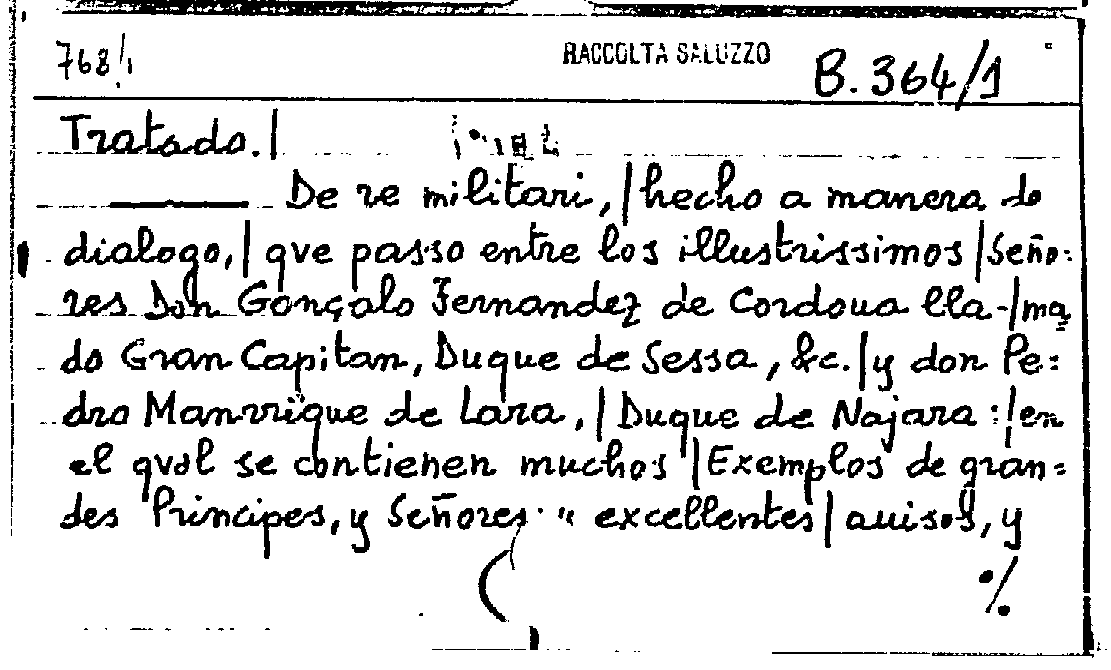 768/1 RACCOLTA SALUZZO B.364/1
Tratado.|
De re militari,|hecho a manera de
dialogo,| que passo entre los illustrissimos|Seño:
res Don Gonçalo Fernandez de Cordoua lla-|ma
do Gran Capitan, Duque de Sessa, &c.|y don Pe:
dro Manrrique de Lara,|Duque de Najara:|en
el qual se contienen muchos|Exemplos de gran=
des Principes, y Señores: excellentes|auisos, y
%